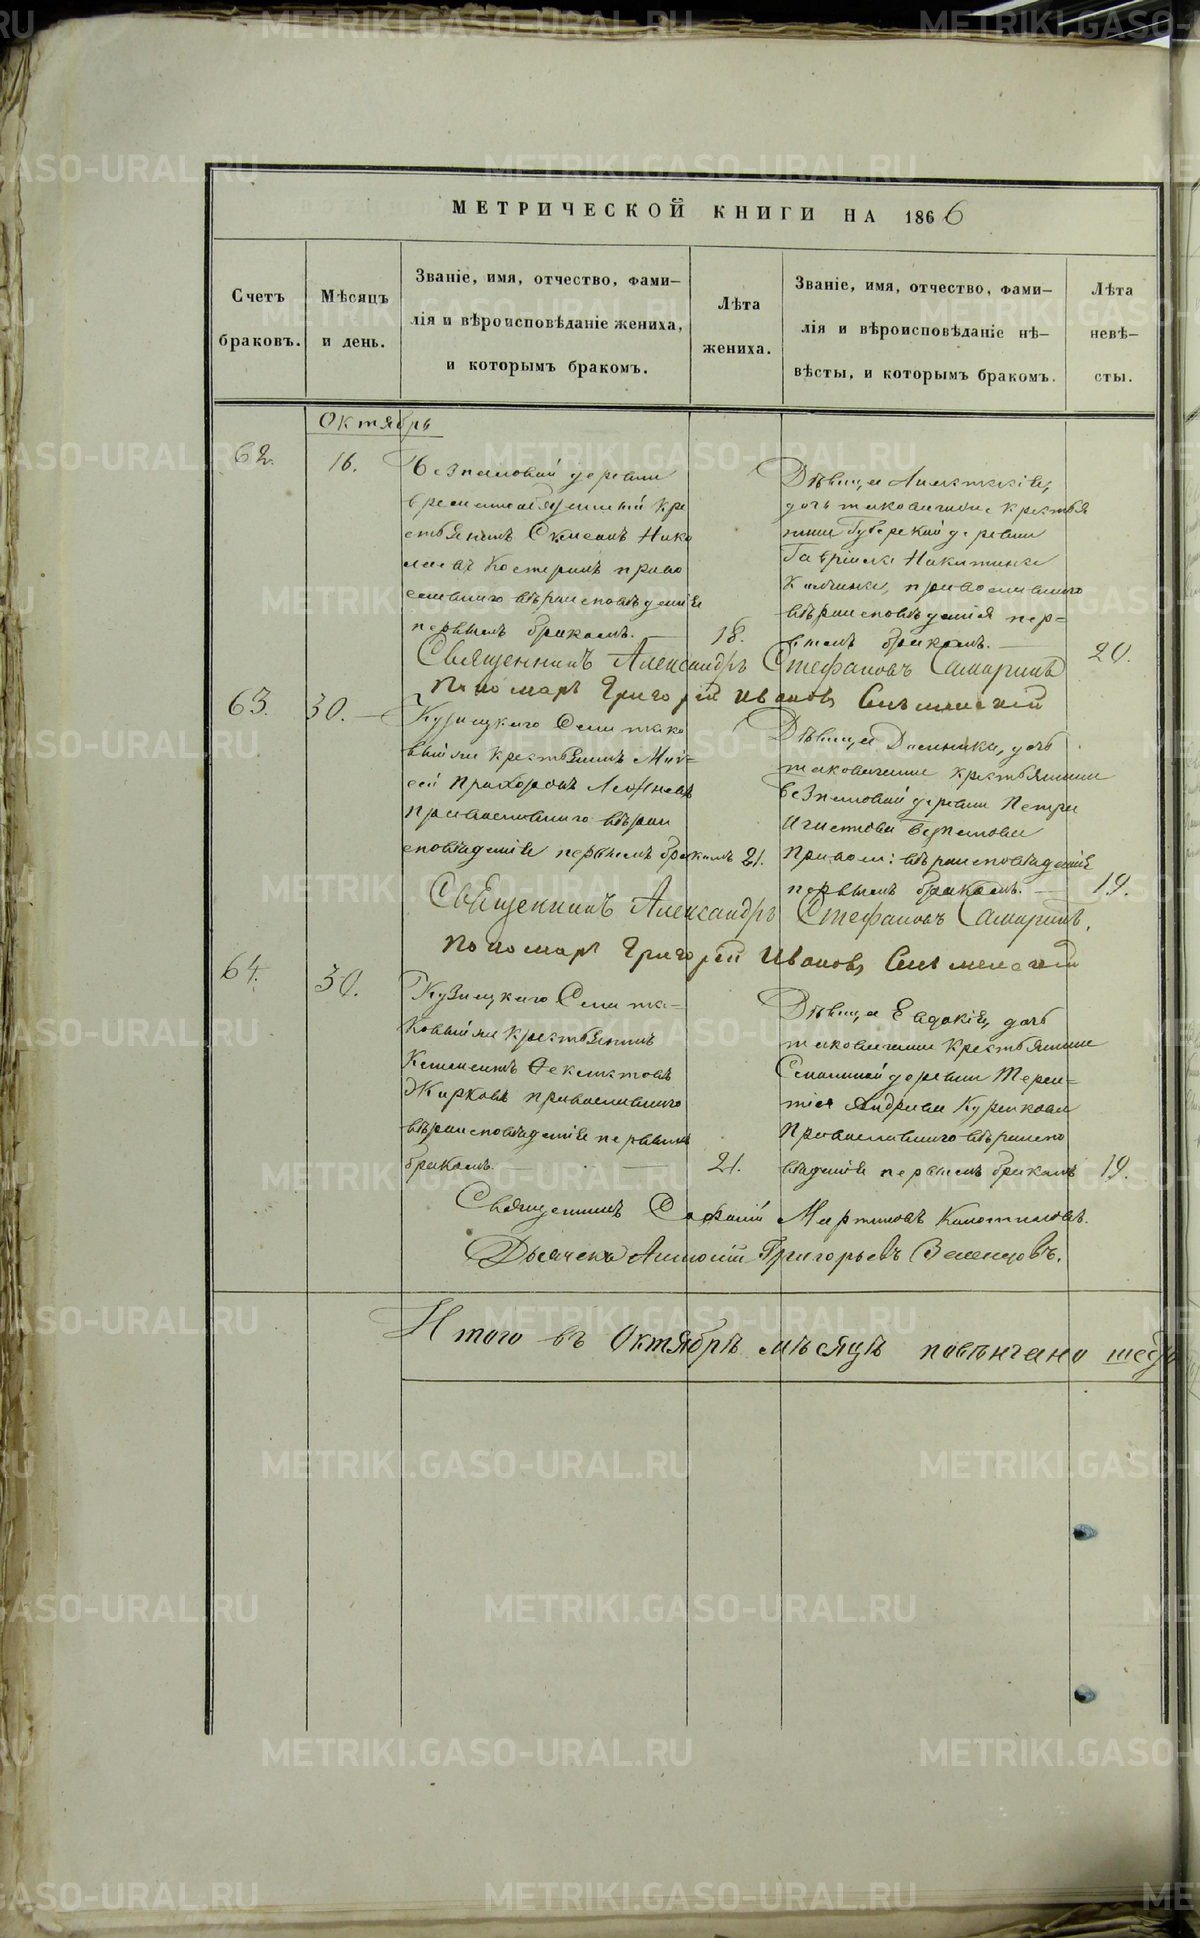 МЕТРИЧЕСКОЙ КНИГИ НА 1866
Счетъ
браковъ.
Мѣсяцъ
и день.
Званіе, имя, отчество, фами-
лія и вѣроисповѣданіе жениха,
и которымъ бракомъ.
Лѣта
жениха.
Званіе, имя, отчество, фами-
лія и вѣроисповѣданіе не-
вѣсты, и которымъ бракомъ.
Лѣта
невѣ-
сты.
Октябрь
62.
16.
деревни
временнообязанный кре
стьянинъ Нико
лаевъ Костеринъ право
славнаго вѣроисповѣданія
первымъ бракомъ.
18.
Дѣвица
дочь таковагоже крестья
нина деревни
Гавріила Никитина
православнаго
вѣроисповѣданія пер=
вымъ бракомъ.
20.
Священникъ Александръ Стефановъ Самаринъ
Пономарь Григорій Ивановъ
63.
30.
Кузнецкаго Села тако
вый же крестьянинъ Мой=
сей Прохоровъ
Православнаго вѣрои
сповѣданія первымъ бракомъ
21.
Дѣвица Домника, дочь
таковагоже крестьянина
деревни Петра
Правосл: вѣроисповѣданія
первымъ бракомъ.
19.
Священникъ Александръ Стефановъ Самаринъ.
Пономарь Григорій Ивановъ
64.
30.
Кузнецкаго Села та=
ковый же крестьянинъ
Климентъ Феклистовъ
Жарковъ православнаго
вѣроисповѣданія первымъ
бракомъ.
21.
Дѣвица Евдокія, дочь
таковагоже крестьянина
деревни Терен=
тія Андреева Куренкова
Православнаго вѣроиспо
вѣданія первымъ бракомъ
19.
Священникъ Мартиновъ
Дьячекъ Григорьевъ
Итого въ Октябрѣ мѣсяцѣ повѣнчано
METRIKI.GASO-URAL.RU